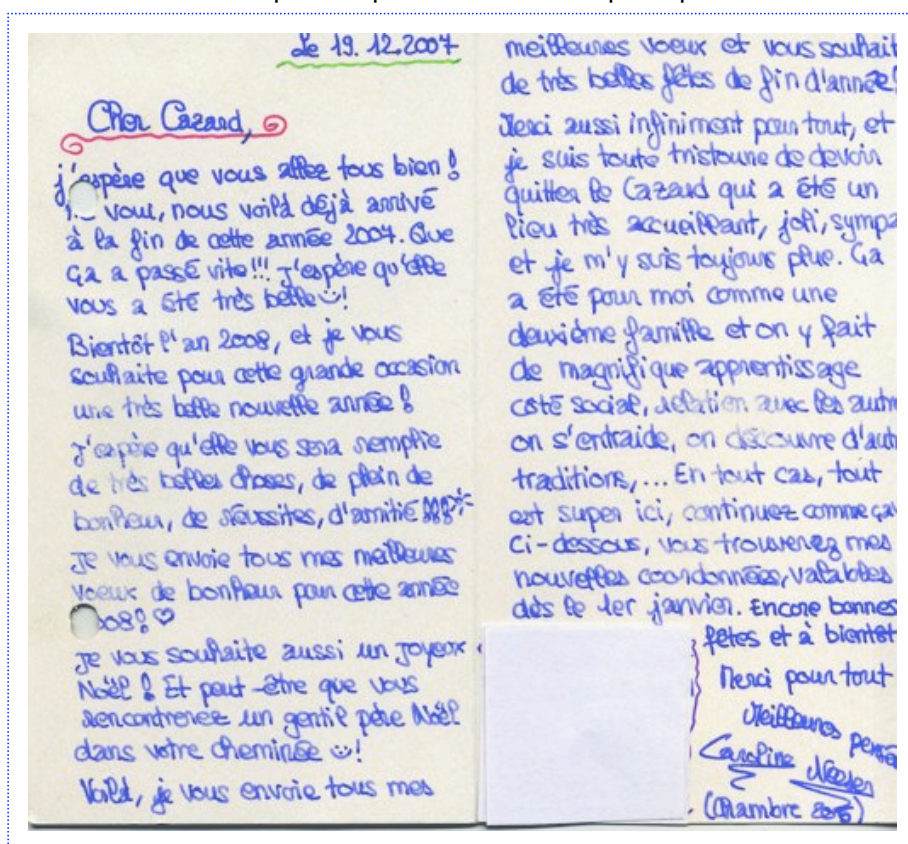 Le 19.12.2007
Cher Cazard,
j'espère que vous allez tous bien !
voui, nous voilà déjà arrivé
à la fin de cette année 2007. Que
ça a passé vite !!! J'espère qu'elle
vous a été très belle !
Bientôt l'an 2008, et je vous
souhaite pour cette grande occasion
une très belle nouvelle année !
J'espère qu'elle vous sera remplie
de très belles choses, de plein de
bonheur, de réussites, d'amitié !!!
Je vous envoie tous mes meilleures
voeux de bonheur pour cette année
008! ♡
Je vous souhaite aussi un joyeux
Noël ! Et peut-être que vous
rencontrerez un gentil père Noël
dans votre cheminée !
Voilà, je vous envoie tous mes
meilleures voeux et vous souhait
de très belles fêtes de fin d'année!
Merci aussi infiniment pour tout, et
je suis toute tristoune de devoir
quitter le Cazard qui a été un
lieu très accueillant, joli, sympa
et je m'y suis toujours plue. Ca
a été pour moi comme une
deuxième famille et on y fait
de magnifique apprentissage
coté social, relation avec les autre
on s'entraide, on découvre d'autr
traditions,... En tout cas, tout
est super ici, continuez comme ça
Ci-dessous, vous trouverez mes
nouvelles coordonnées, valables
dès le 1er janvier. Encore bonnes
fêtes et à bientôt
Merci pour tout
Meilleures pensé
Caroline
(Chambre